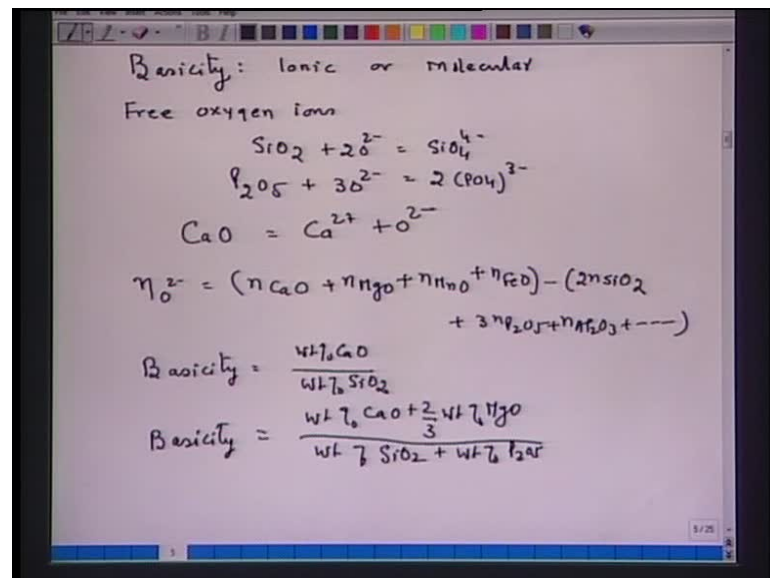 Basicity: Ionic or molecular
Free oxygen ions
SiO2 + 2O2- = SiO4 4-
P2O5 + 3O2- = 2 (PO4)3-
CaO = Ca2+ + O2-
nO2- = (nCaO + nMgO + nMnO + nFeO) - (2nSiO2
+ 3nP2O5 + nAl2O3 + ----)
Basicity = wt% CaO / wt% SiO2
Basicity = wt% CaO + 2/3 wt% MgO / wt% SiO2 + wt% P2O5
5/25
5